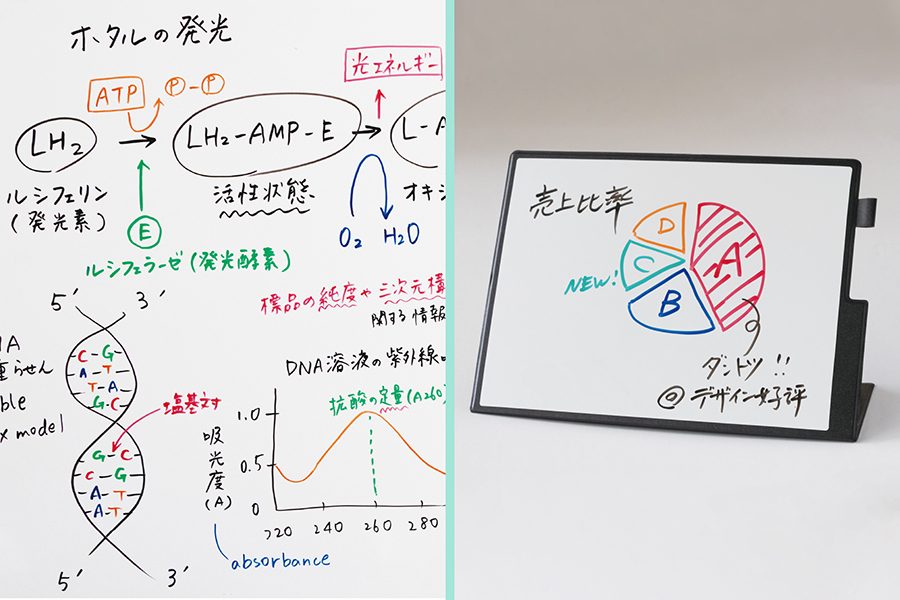 ホタルの発光
ATP
P-P
光エネルギー
LH2
LH2-AMP-E
L-A
ルシフェリン
(発光素)
活性状態
オキシ
E
O2
H2O
ルシフェラーゼ(発光酵素)
5′
3′
標品の純度や三次元構
関する情報
らせん
C-G
A-T
T-A
G-C
model
塩基対
G-C
C-G
A-T
A-T
5′
3′
DNA溶液の紫外線
抗酸の定量(A260)
吸光度
(A)
1.0
0.5
0
220
240
260
280
absorbance
売上比率
D
C
B
A
NEW!
ダントツ!!
デザイン好評